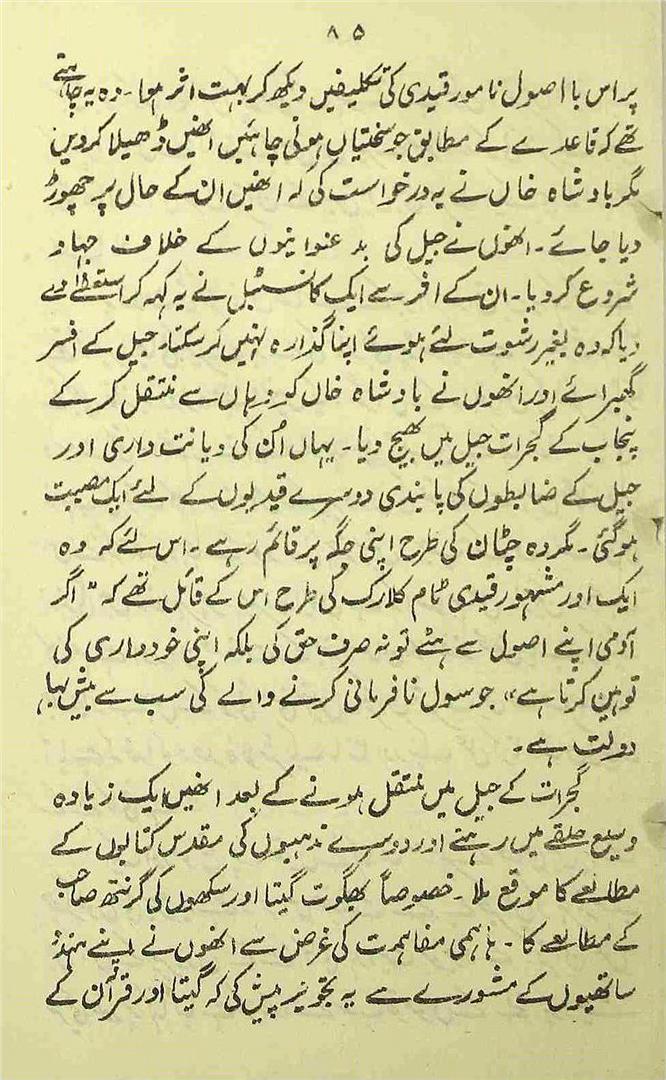 ۸۵
پر اس با اصول نامور قیدی کی تکلیفیں دیکھ کر بہت اثر ہوا۔ وہ یہ چاہتے
تھے کہ قاعدے کے مطابق جو سختیاں ہونی چاہئیں انھیں ڈھیلا کردیں
مگر بادشاہ خاں نے یہ درخواست کی کہ انھیں ان کے حال پر چھوڑ
دیا جائے۔ انھوں نے جیل کی بد عنوانیوں کے خلاف جہاد
شروع کردیا۔ ان کے اثر سے ایک کانسٹبل نے یہ کہہ کر استعفےٰ دے
دیا کہ وہ بغیر رشوت لئے ہوئے اپنا گذارہ نہیں کرسکتا۔ جیل کے افسر
گھبرائے اور انھوں نے بادشاہ خاں کو وہاں سے منتقل کرکے
پنجاب کے گجرات جیل میں بھیج دیا۔ یہاں اُن کی دیانت داری اور
جیل کے ضابطوں کی پابندی دوسرے قیدیوں کے لئے ایک مصیبت
ہوگئی۔ مگر وہ چٹان کی طرح اپنی جگہ پر قائم رہے۔ اس لئے کہ وہ
ایک اور مشہور قیدی ٹام کلارک کی طرح اس کے قائل تھے کہ "اگر
آدمی اپنے اصول سے ہٹے تو نہ صرف حق کی بلکہ اپنی خودداری کی
توہین کرتا ہے" جو سول نافرمانی کرنے والے کی سب سے بیش بہا
دولت ہے۔
گجرات کے جیل میں منتقل ہونے کے بعد انھیں ایک زیادہ
وسیع حلقے میں رہنے اور دوسرے مذہبوں کی مقدس کتابوں کے
مطالعے کا موقع ملا۔ خصوصاً بھگوت گیتا اور سکھوں کی گرنتھ صاحب
کے مطالعے کا۔ باہمی مفاہمت کی غرض سے انھوں نے اپنے ہندو
ساتھیوں کے مشورے سے یہ تجویز پیش کی کہ گیتا اور قرآن کے